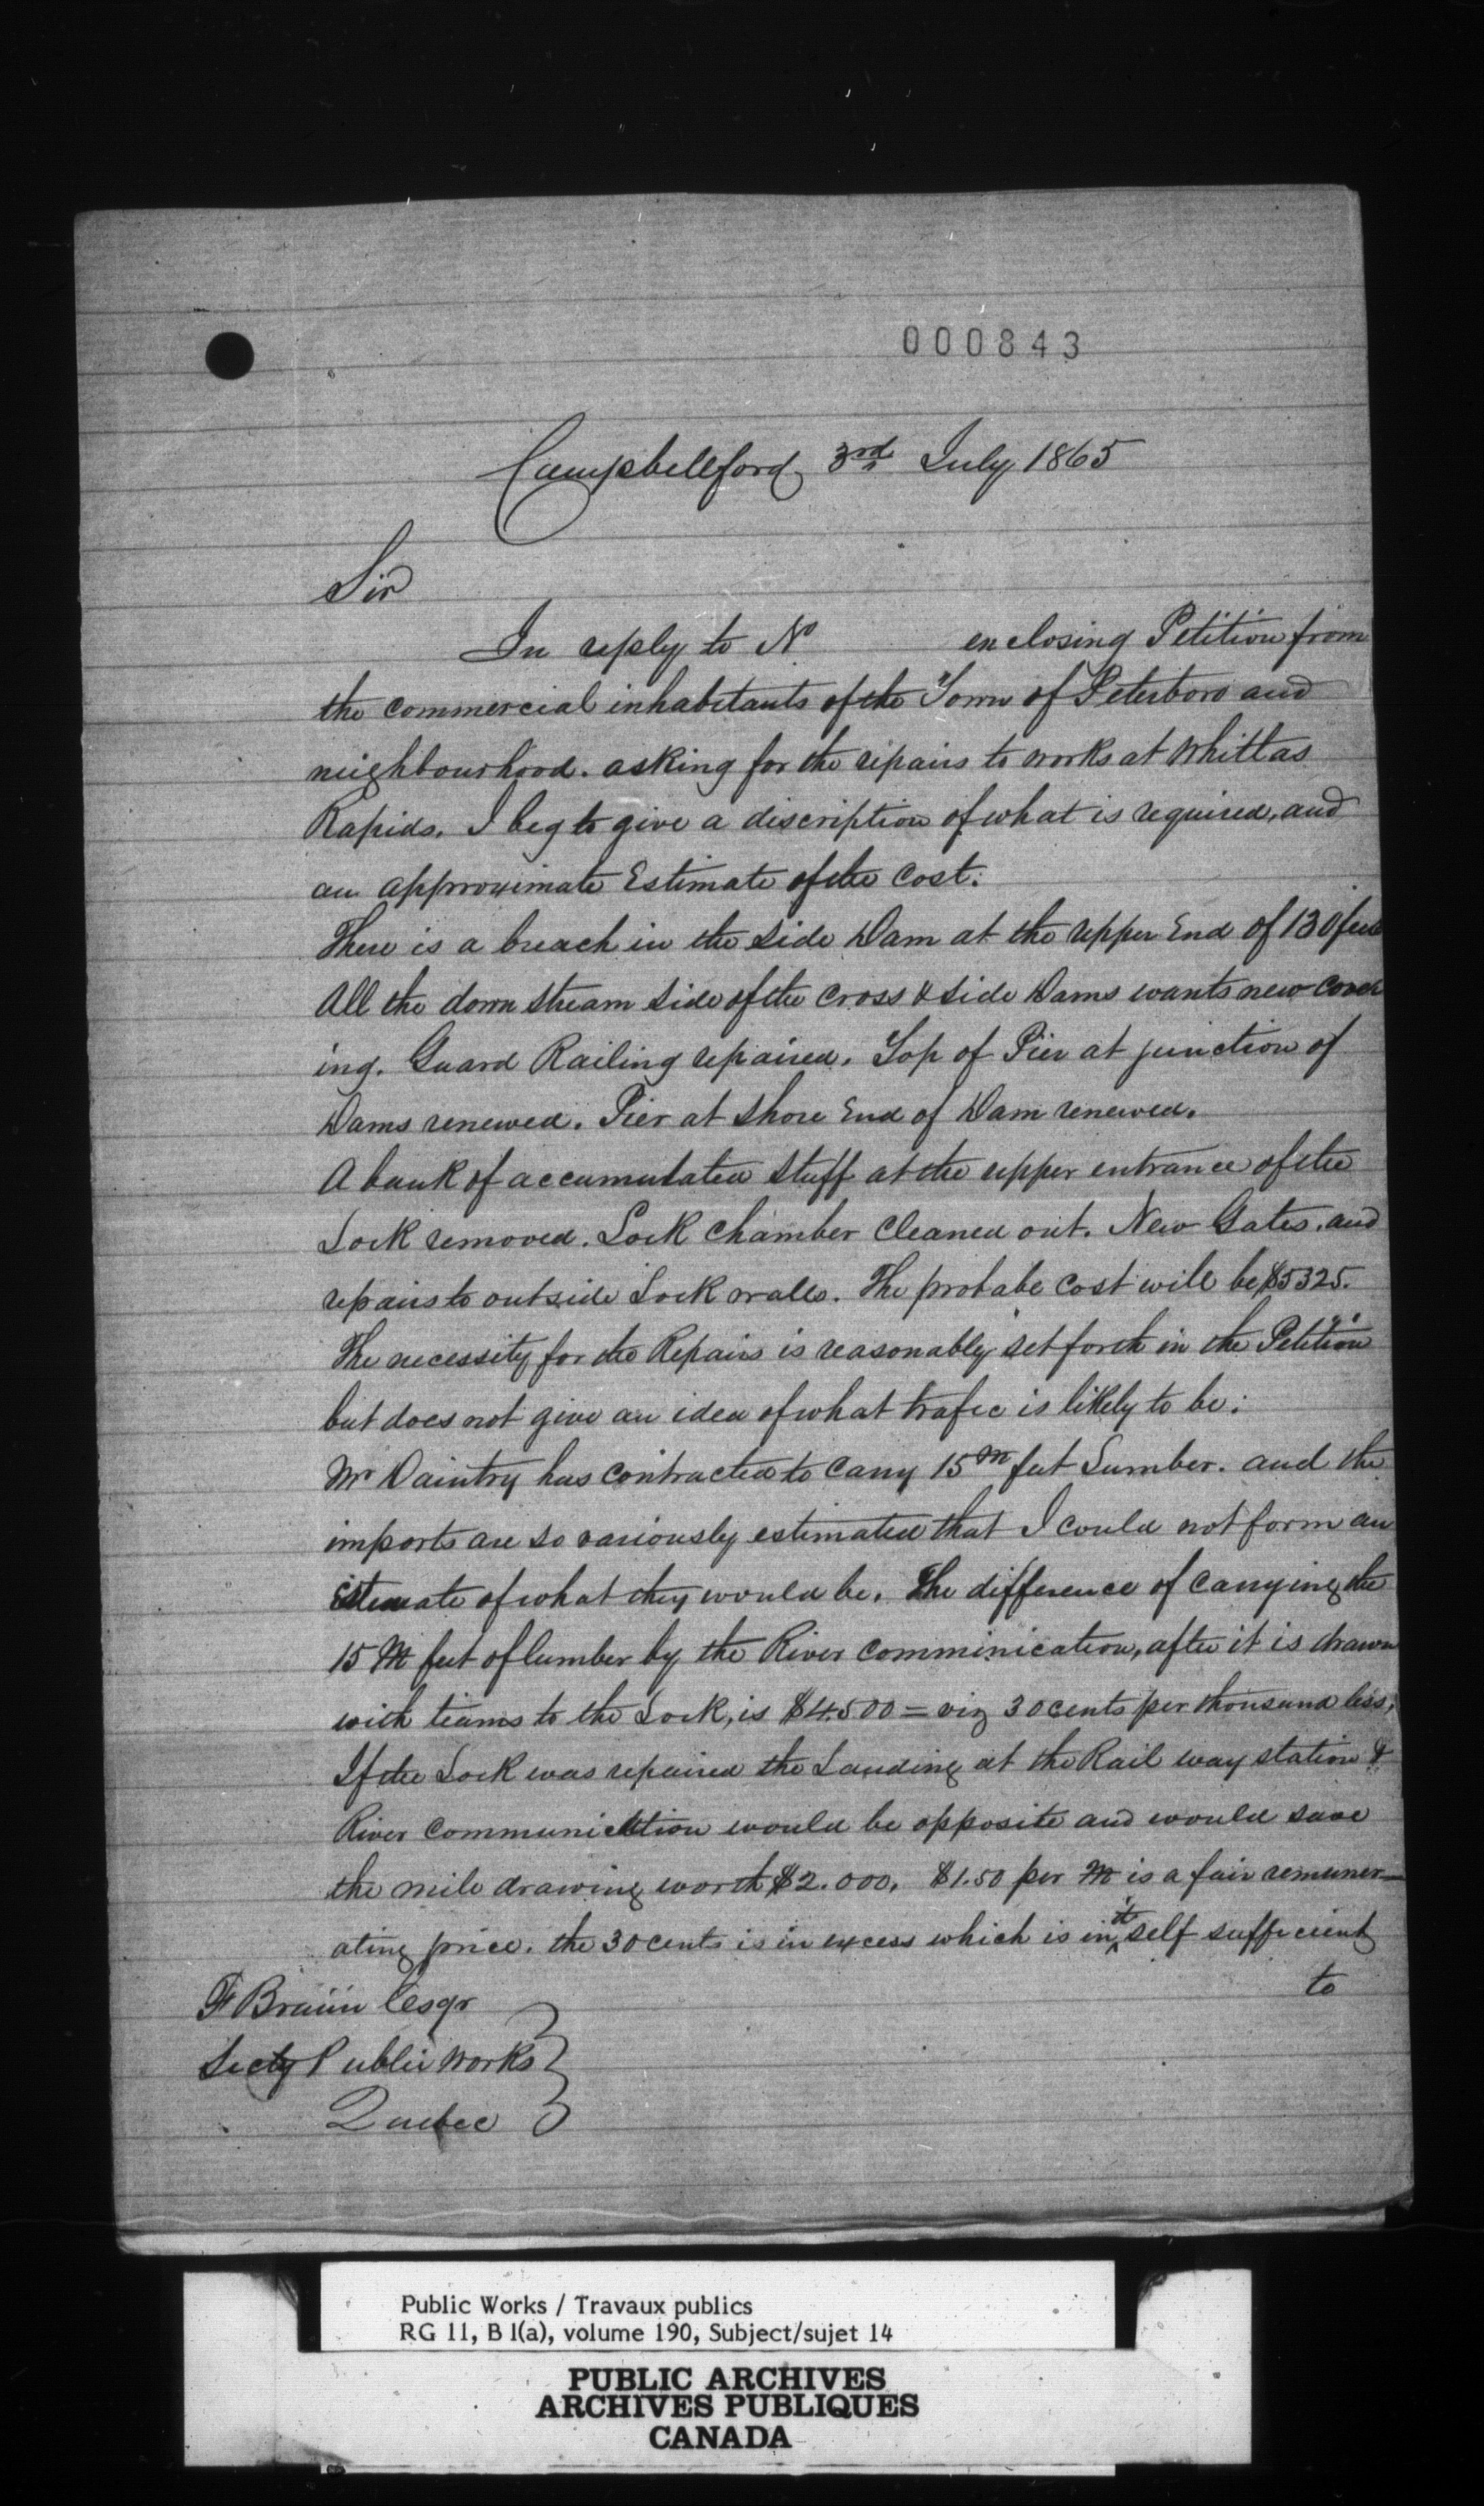 000843
Campbellford, 3rd July 1865
Sir
In reply to No enclosing Petition from
the commercial inhabitants of the Town of Peterboro and
neighbourhood. asking for the repairs to works at Whitlas
Rapids. I beg to give a discription of what is required, and
an approximate Estimate of the Cost.
There is a breach in the Side Dam at the upper End of 130 feet
All the down stream side of the Cross & side Dams wants new cover
ing. Guard Railing repaired. Top of Pier at junction of
Dams renewed. Pier at Shore End of Dam renewed.
A bank of accumulated stuff at the upper entrance of the
Lock removed. Lock Chamber Cleaned out. New Gates, and
repairs to outside Lock walls. The probabe Cost will be $5325.
The necessity for the Repairs is reasonably set forth in the Petition
but does not give an idea of what trafic is likely to be:
Mr Daintry has contracted to carry 15 M feet Lumber. and the
imports are so variously estimated that I could not form an
estemate of what they would be. The difference of carrying the
15 M feet of lumber by the River comminication, after it is drawn
with teams to the Lock, is $4.500 = viz 30 cents per thousand less,
If the Lock was repaired the Landing at the Rail way station &
River communication would be opposite and would save
the mile drawing worth $2.000. $1.50 per M is a fair remuner-
ating price. the 30 cents is in excess which is in itself sufficient
to
F Braün Esqr
Secty Public Works
Quebec
Public Works / Travaux publics
RG 11, B 1(a), volume 190, Subject/sujet 14
PUBLIC ARCHIVES
ARCHIVES PUBLIQUES
CANADA